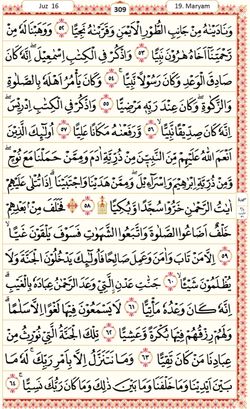 Juz 16
309
19. Maryam
وَنَادَيْنٰهُ مِنْ جَانِبِ الطُّوْرِ الْاَيْمَنِ وَقَرَّبْنٰهُ نَجِيًّا ﴿٥٢﴾ وَوَهَبْنَا لَهٗ مِنْ
رَّحْمَتِنَآ اَخَاهُ هٰرُوْنَ نَبِيًّا ﴿٥٣﴾ وَاذْكُرْ فِي الْكِتٰبِ اِسْمٰعِيْلَ ۚ اِنَّهٗ كَانَ
صَادِقَ الْوَعْدِ وَكَانَ رَسُوْلًا نَّبِيًّا ﴿٥٤﴾ وَكَانَ يَاْمُرُ اَهْلَهٗ بِالصَّلٰوةِ
وَالزَّكٰوةِ ۪ وَكَانَ عِنْدَ رَبِّهٖ مَرْضِيًّا ﴿٥٥﴾ وَاذْكُرْ فِي الْكِتٰبِ اِدْرِيْسَ ۚ
اِنَّهٗ كَانَ صِدِّيْقًا نَّبِيًّا ﴿٥٦﴾ وَّرَفَعْنٰهُ مَكَانًا عَلِيًّا ﴿٥٧﴾ اُولٰٓئِكَ الَّذِيْنَ
اَنْعَمَ اللّٰهُ عَلَيْهِمْ مِّنَ النَّبِيّٖنَ مِنْ ذُرِّيَّةِ اٰدَمَ ۚ وَمِمَّنْ حَمَلْنَا مَعَ نُوْحٍ ؗ
وَّمِنْ ذُرِّيَّةِ اِبْرٰهِيْمَ وَاِسْرَآءِيْلَ ؗ وَمِمَّنْ هَدَيْنَا وَاجْتَبَيْنَا ؕ اِذَا تُتْلٰى عَلَيْهِمْ
اٰيٰتُ الرَّحْمٰنِ خَرُّوْا سُجَّدًا وَّبُكِيًّا ﴿٥٨﴾ فَخَلَفَ مِنْۢ بَعْدِهِمْ
خَلْفٌ اَضَاعُوا الصَّلٰوةَ وَاتَّبَعُوا الشَّهَوٰتِ فَسَوْفَ يَلْقَوْنَ غَيًّا ﴿٥٩﴾
اِلَّا مَنْ تَابَ وَاٰمَنَ وَعَمِلَ صَالِحًا فَاُولٰٓئِكَ يَدْخُلُوْنَ الْجَنَّةَ وَلَا
يُظْلَمُوْنَ شَيْـًٔا ﴿٦٠﴾ جَنّٰتِ عَدْنِ ۨ الَّتِيْ وَعَدَ الرَّحْمٰنُ عِبَادَهٗ بِالْغَيْبِ ؕ
اِنَّهٗ كَانَ وَعْدُهٗ مَاْتِيًّا ﴿٦١﴾ لَا يَسْمَعُوْنَ فِيْهَا لَغْوًا اِلَّا سَلٰمًا ؕ
وَلَهُمْ رِزْقُهُمْ فِيْهَا بُكْرَةً وَّعَشِيًّا ﴿٦٢﴾ تِلْكَ الْجَنَّةُ الَّتِيْ نُوْرِثُ مِنْ
عِبَادِنَا مَنْ كَانَ تَقِيًّا ﴿٦٣﴾ وَمَا نَتَنَزَّلُ اِلَّا بِاَمْرِ رَبِّكَ ۚ لَهٗ مَا
بَيْنَ اَيْدِيْنَا وَمَا خَلْفَنَا وَمَا بَيْنَ ذٰلِكَ ۚ وَمَا كَانَ رَبُّكَ نَسِيًّا ﴿٦٤﴾